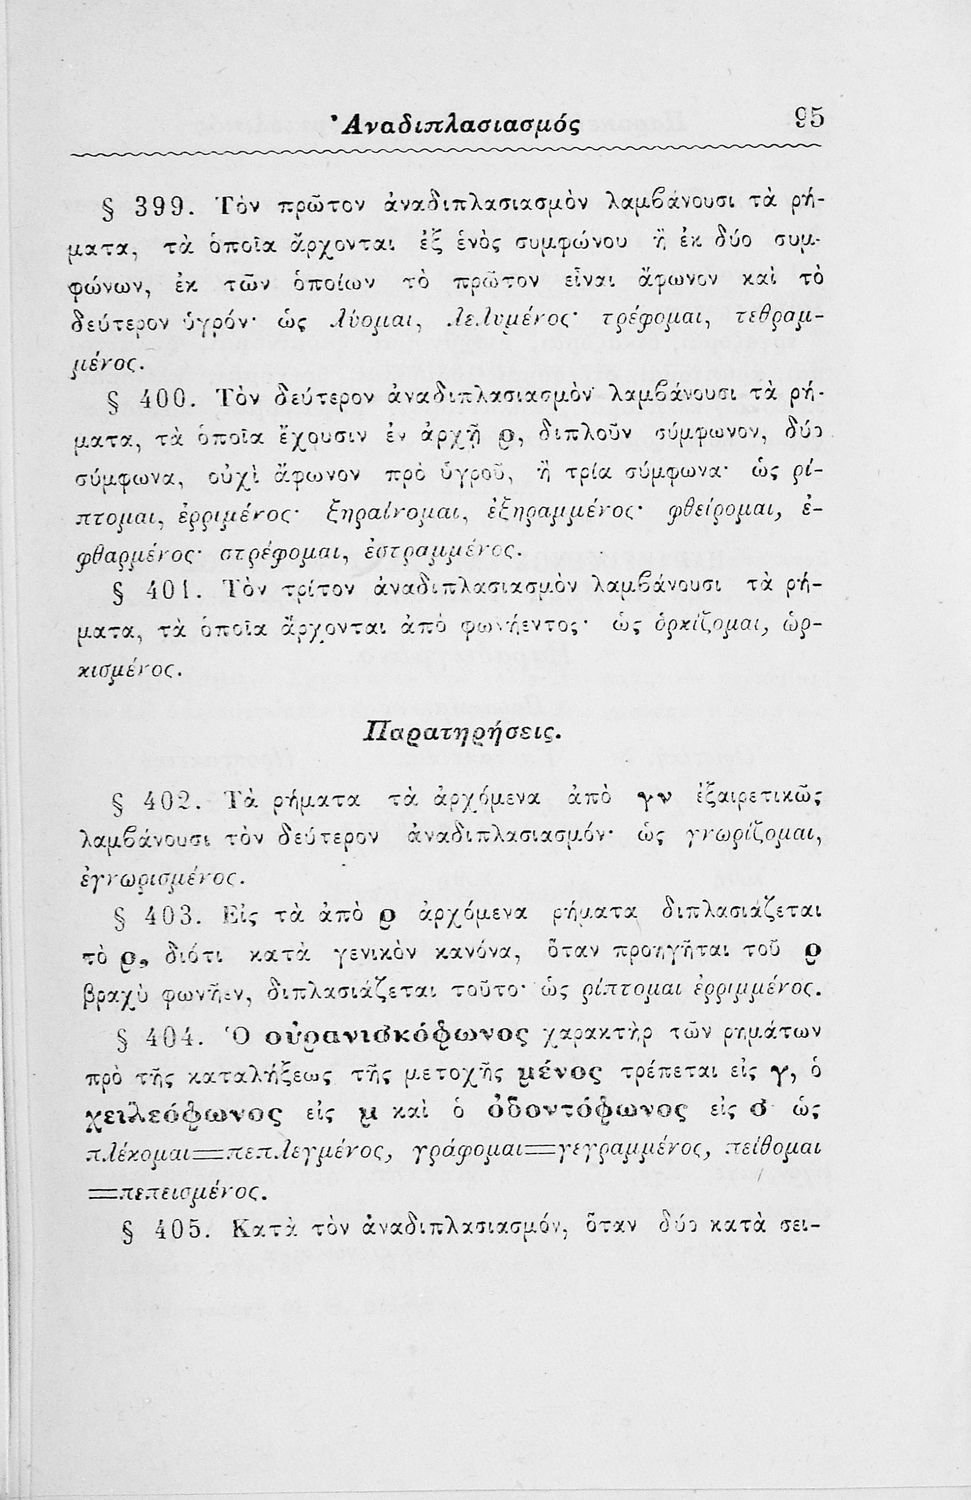 Ἀναδιπλασιασμός 95
§ 399. Τὸν πρῶτον ἀναδιπλασιασμὸν λαμβάνουσι τὰ ρή-
ματα, τὰ ὁποῖα ἄρχονται ἐξ ἑνὸς συμφώνου ἢ ἐκ δύο συμ-
φώνων, ἐκ τῶν ὁποίων τὸ πρῶτον εἶναι ἄφωνον καὶ τὸ
δεύτερον ὑγρόν· ὡς λύομαι, λελυμένος· τρέφομαι, τεθραμ-
μένος.
§ 400. Τὸν δεύτερον ἀναδιπλασιασμὸν λαμβάνουσι τὰ ρή-
ματα, τὰ ὁποῖα ἔχουσιν ἐν ἀρχῇ ρ, διπλοῦν σύμφωνον, δύο
σύμφωνα, οὐχὶ ἄφωνον πρὸ ὑγροῦ, ἢ τρία σύμφωνα· ὡς ρί-
πτομαι, ἐρριμένος· ξηραίνομαι, ἐξηραμμένος· φθείρομαι, ἐ-
φθαρμένος· στρέφομαι, ἐστραμμένος.
§ 401. Τὸν τρίτον ἀναδιπλασιασμὸν λαμβάνουσι τὰ ρή-
ματα, τὰ ὁποῖα ἄρχονται ἀπὸ φωνήεντος· ὡς ὁρκίζομαι, ὡρ-
κισμένος.
Παρατηρήσεις.
§ 402. Τὰ ρήματα τὰ ἀρχόμενα ἀπὸ γν ἐξαιρετικῶς
λαμβάνουσι τὸν δεύτερον ἀναδιπλασιασμόν· ὡς γνωρίζομαι,
ἐγνωρισμένος.
§ 403. Εἰς τὰ ἀπὸ ρ ἀρχόμενα ρήματα διπλασιάζεται
τὸ ρ, διότι κατὰ γενικὸν κανόνα, ὅταν προηγῆται τοῦ ρ
βραχὺ φωνῆεν, διπλασιάζεται τοῦτο· ὡς ρίπτομαι ἐρριμμένος.
§ 404. Ὁ οὐρανισκόφωνος χαρακτὴρ τῶν ρημάτων
πρὸ τῆς καταλήξεως τῆς μετοχῆς μένος τρέπεται εἰς γ, ὁ
χειλεόφωνος εἰς μ καὶ ὁ ὀδοντόφωνος εἰς σ· ὡς
πλέκομαι=πεπλεγμένος, γράφομαι=γεγραμμένος, πείθομαι
=πεπεισμένος.
§ 405. Κατὰ τὸν ἀναδιπλασιασμόν, ὅταν δύο κατὰ σει-